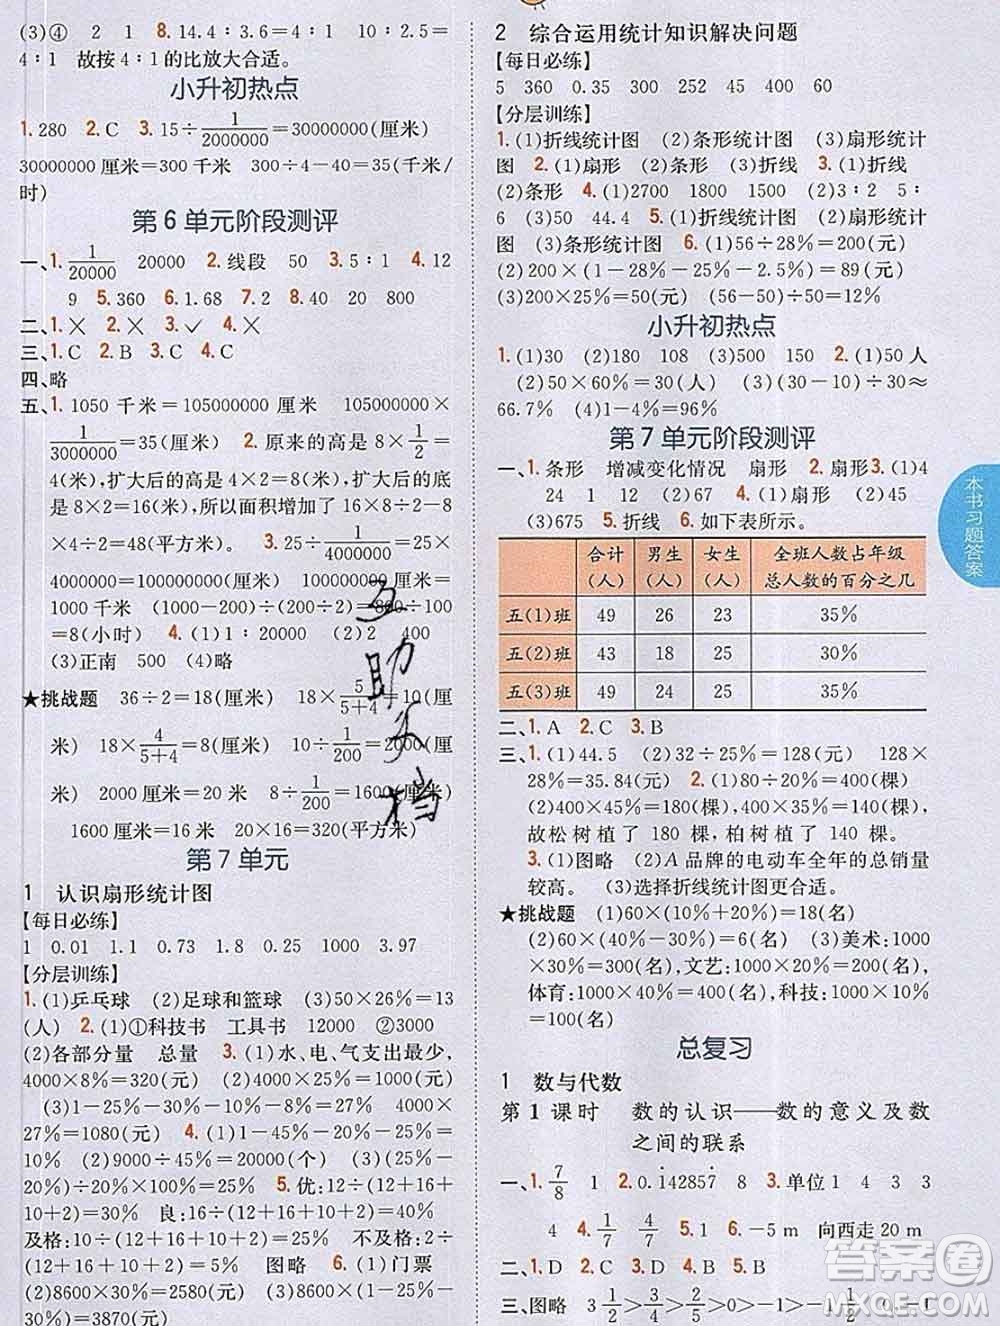 (3)④ 2 1 8. 14.4∶3.6=4∶1 10∶2.5=
4∶1 故按4∶1的比放大合适。
小升初热点
1. 280 2. C 3. 15÷1/2000000=30000000(厘米)
30000000厘米=300千米 300÷4-40=35(千米/
时)
第6单元阶段测评
一、1. 1/20000 20000 2. 线段 50 3. 5∶1 4. 12
9 5. 360 6. 1.68 7. 2 8. 40 20 800
二、1. × 2. × 3. ✓ 4. ×
三、1. C 2. B 3. C 4. C
四、略
五、1. 1050千米=105000000厘米 105000000×
1/3000000=35(厘米) 2. 原来的高是8×1/2=
4(厘米),扩大后的高是4×2=8(厘米),扩大后的底是
8×2=16(厘米),扩大后面积增加了16×8÷2-8
×4÷2=48(平方厘米)。 3. 25÷1/4000000=
100000000(厘米) 100000000厘米=
1000千米 1000÷(200÷2)=800÷100
=8(小时) 4. (1)北 200 (2)2 400
(3)正南 500 (4)略
★挑战题 36÷2=18(厘米) 18×5/(5+4)=10(厘
米) 18×4/(5+4)=8(厘米) 10÷1/200=2000(厘
米) 2000厘米=20米 8÷1/200=1600(厘米)
1600厘米=16米 20×16=320(平方米)
第7单元
1 认识扇形统计图
【每日必练】
1 0.01 1.1 0.73 1.8 0.25 1000 3.97
【分层训练】
1. (1)乒乓球 (2)足球和篮球 (3)50×26%=13
(人) 2. (1)①科技书 工具书 12000 ②3000
(2)各部分量 总量 3. (1)水、电、气支出最少,
4000×8%=320(元) (2)4000×45%=1800(元)
(3)1-25%-30%-10%-8%=27% 4000×
27%=1080(元) 4. (1)1-45%-20%-25%=
10% (2)9000÷45%=20000(册) (3)(25%-
20%)÷20%×100%=25% 5. 优:12÷(2+12+16+
10+2)=30% 良:16÷(12+16+10+2)=40%
及格:10÷(12+16+10+2)=25% 不及格:2÷
(12+16+10+2)=5% 图略 6. (1)门票
(2)8600×30%=2580(元) (3)8600×(1-30%-
10%-15%)=3870(元)
2 综合运用统计知识解决问题
【每日必练】
5 360 0.35 300 252 45 400 60
【分层训练】
1. (1)折线统计图 (2)条形统计图 (3)扇形统计
图 2. (1)扇形 (2)条形 (3)折线 3. (1)折线
(2)条形 4. (1)2700 1800 1500 (2)3∶2 5∶
6 (3)50 44.4 5. (1)折线统计图 (2)扇形统计
图 (3)条形统计图 6. (1)56÷28%=200(元)
(2)200×(1-28%-25%-2.5%)=89(元)
(3)200×25%=50(元) (56-50)÷50=12%
小升初热点
1. (1)30 (2)180 108 (3)500 2. (1)50人
(2)50×60%=30(人) (3)(30-10)÷30≈
66.7% (4)1-4%=96%
第7单元阶段测评
一、1. 条形 增减变化情况 扇形 2. 扇形 3. (1)4
24 1 12 (2)50% 4. (1)扇形 (2)45
(3)675 5. 折线 6. 如下表所示。
合计(人) 男生(人) 女生(人) 全班人数占年级总人数的百分之几
五(1)班 49 26 23 35%
五(2)班 43 18 25 30%
五(3)班 49 24 25 35%
二、1. A 2. C 3. B
三、1. (1)44.5 (2)32÷25%=128(元) 128×
28%=35.84(元) 2. (1)80÷20%=400(棵)
(2)400×45%=180(棵),400×35%=140(棵),
故松树植了180棵,柏树植了140棵。
3. (1)图略 (2)A品牌的电动车全年的总销量
较高。 (3)选择折线统计图更合适。
★挑战题 (1)60×(10%+20%)=18(名)
(2)60×(40%-30%)=6(名) (3)美术:1000
×30%=300(名),文艺:1000×20%=200(名),
体育:1000×40%=400(名),科技:1000×10%=
100(名)
总复习
1 数与代数
第1课时 数的认识——数的意义及数
之间的联系
一、1. 7/8 1 2. 0.1̇42857̇ 8 3. 单位1 4 3 3
4 4. 4/7 4/7 5. 1 1 6. -5 m 向西走20 m
二、1. D 2. C 3. C 4. B 5. B
三、图略 3 1/2>3/4>2/5>0>-1>-1 1/2>
本书习题答案
互
助
文
档
答案圈
MXQE.COM